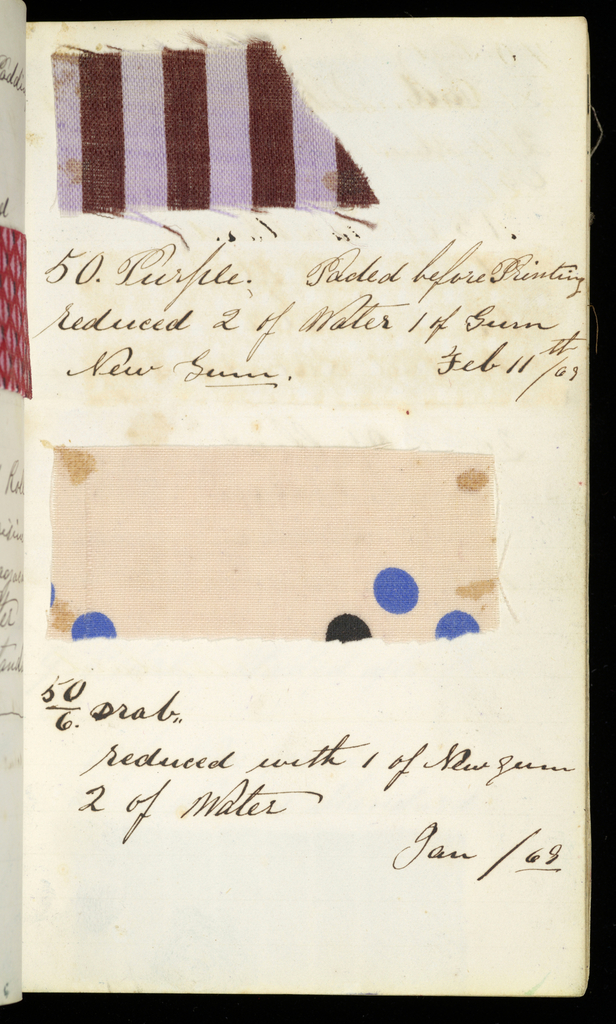 50. Purple. Paded before Printing
reduced 2 of Water 1 of Gum
New Gum. Feb 11th /69
50/6. Drab,,
reduced with 1 of New gum
2 of Water
Jan /69